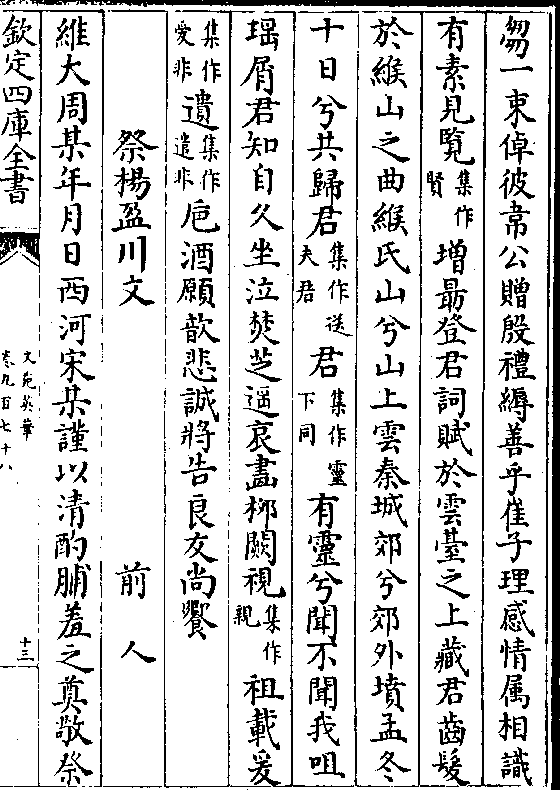 芻一束倬彼韋公贈殷禮縟善乎崔子理感情属相識
有素見覽集作賢増最登君詞賦於雲臺之上藏君齒髮
於緱山之曲緱氏山兮山上雲秦城郊兮郊外墳孟冬
十日兮共歸君集作送夫君君集作靈下同有靈兮聞不聞我咀
瑶屑君知自久坐泣焚芝遥哀畫柳闕視集作親祖載爰
集作愛非遺集作遣非巵酒願歆悲誠將告良友尚饗
祭楊盈川文　前人
維大周某年月日西河宋某謹以清酌脯羞之奠敬祭
欽定四庫全書
文苑英華
卷九百七十八
十三